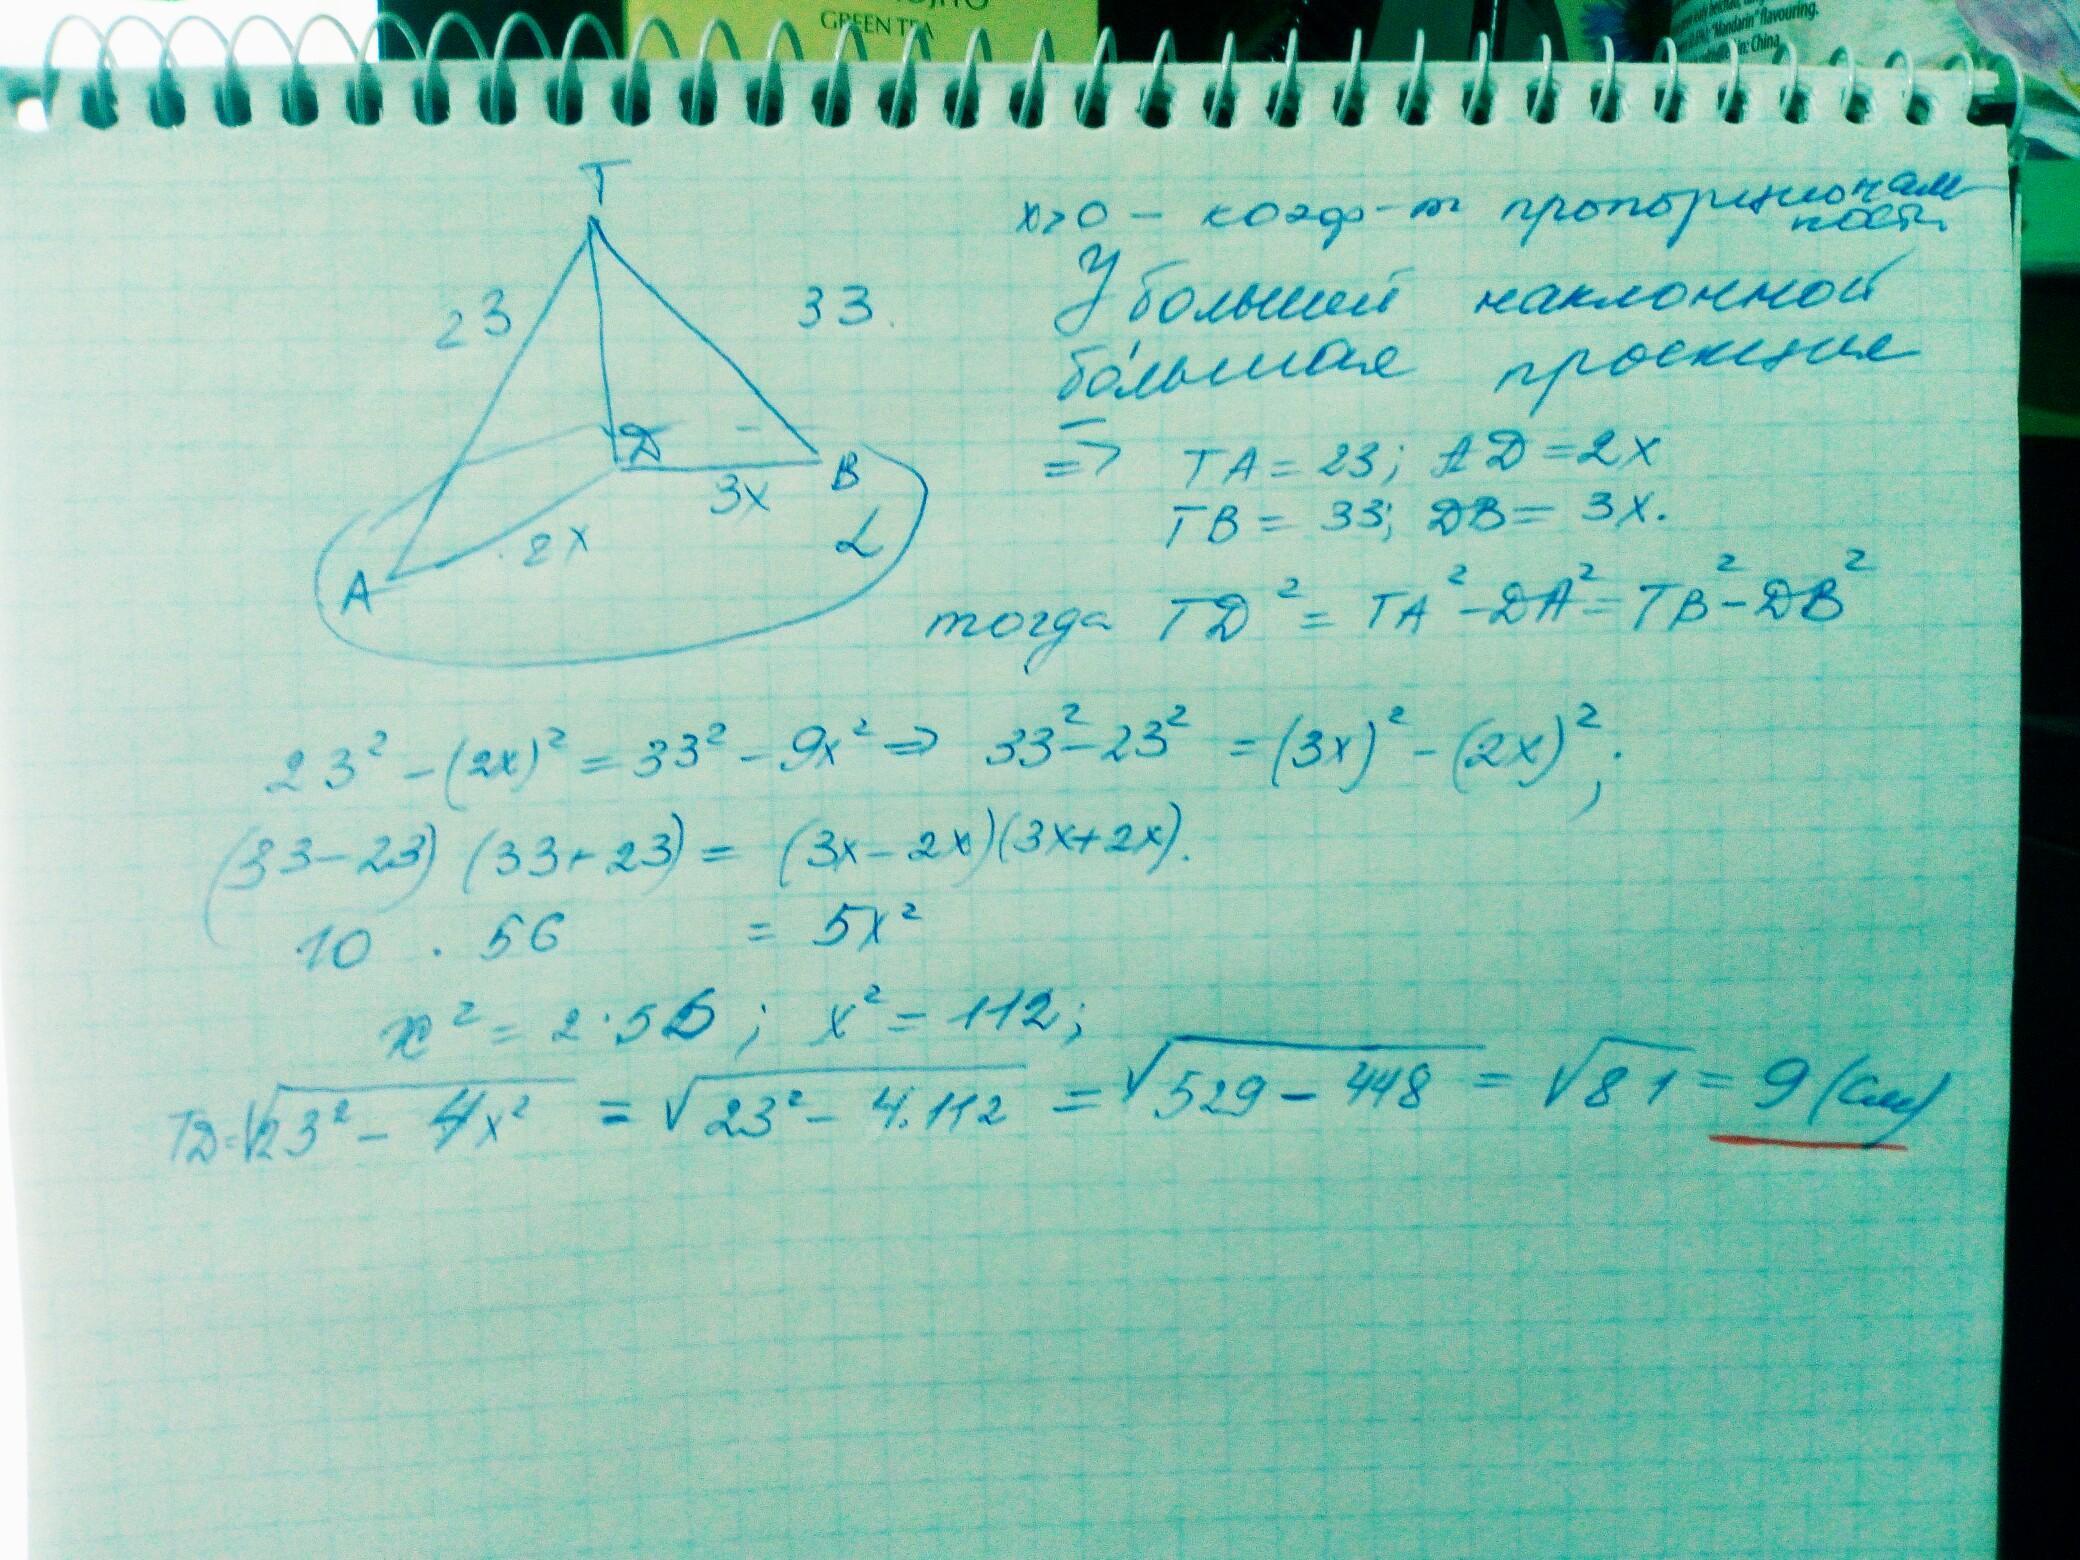 GREEN TEA
"Mandarin" flavouring.
in: China
T
23
33.
D
B
3x
2x
A
L
x>0 – коэф-т пропорциональ
ности
У большей наклонной
бо́льшая проекция
=> TA = 23; AD = 2x
TB = 33; DB = 3x.
тогда TD² = TA² - DA² = TB² - DB²
23² - (2x)² = 33² - 9x² => 33² - 23² = (3x)² - (2x)²;
(33 - 23) (33 + 23) = (3x - 2x)(3x + 2x).
10 · 56 = 5x²
x² = 2·56; x² = 112;
TD = √23² - 4x² = √23² - 4·112 = √529 - 448 = √81 = 9 (см)